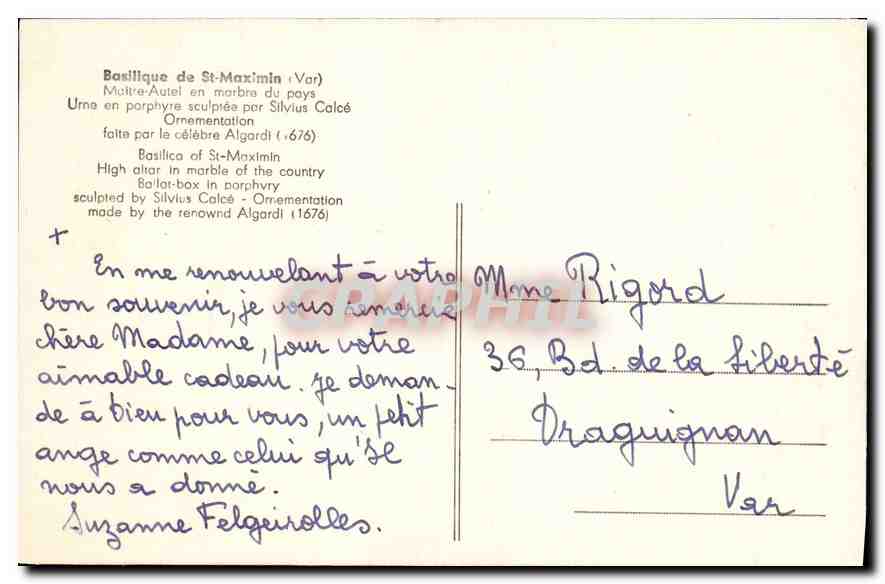 Basilique de St-Maximin (Var)
Maître-Autel en marbre du pays
Urne en porphyre sculptée par Silvius Calcé
Ornementation
faite par le célèbre Algardi (1676)
Basilica of St-Maximin
High altar in marble of the country
Ballot-box in porphyry
sculpted by Silvius Calcé - Ornementation
made by the renownd Algardi (1676)
+
En me renouvelant à votre
bon souvenir, je vous remercie
chère Madame, pour votre
aimable cadeau. Je deman-
de à bieu pour vous, un petit
ange comme celui qu'Il
nous a donné.
Suzanne Felgeirolles.
Mme Rigord
36, Bd. de la Liberté
Draguignan
Var
CPAPHIL